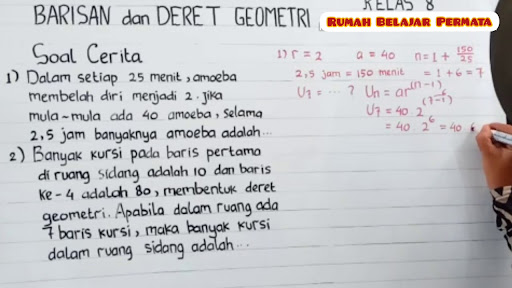 BARISAN dan DERET GEOMETRI
KELAS 8
RUMAH BELAJAR PERMATA
Soal Cerita
1) Dalam setiap 25 menit, amoeba
membelah diri menjadi 2. Jika
mula-mula ada 40 amoeba, selama
2,5 jam banyaknya amoeba adalah...
2) Banyak kursi pada baris pertama
di ruang sidang adalah 10 dan baris
ke-4 adalah 80, membentuk deret
geometri. Apabila dalam ruang ada
7 baris kursi, maka banyak kursi
dalam ruang sidang adalah...
1) r = 2 a = 40 n = 1 + 150/25
2,5 jam = 150 menit = 1 + 6 = 7
U7 = ... ? Un = ar^(n-1)
U7 = 40 2^(7-1)
= 40 2^6 = 40 6